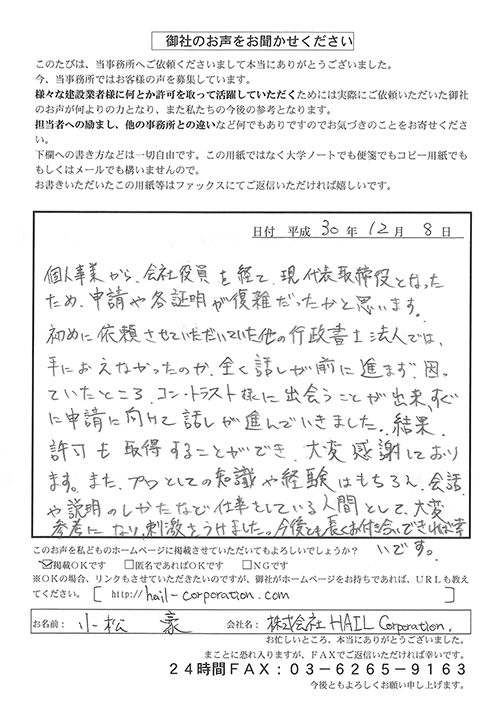 御社のお声をお聞かせください
このたびは、当事務所へご依頼くださいまして本当にありがとうございました。
今、当事務所ではお客様の声を募集しています。
様々な建設業者様に何とか許可を取って活躍していただくためには実際にご依頼いただいた御社
のお声が何よりの力となり、また私たちの今後の参考となります。
担当者への励まし、他の事務所との違いなど何でもありですのでお気づきのことをお寄せくださ
い。
下欄への書き方などは一切自由です。この用紙ではなく大学ノートでも便箋でもコピー用紙でも
もしくはメールでも構いませんので。
お書きいただいたこの用紙等はファックスにてご返信いただければ嬉しいです。
日付 平成 30 年 12 月 8 日
個人事業から、会社役員を経て、現代表取締役となった
ため、申請や各証明が複雑だったかと思います。
初めに依頼させていただいていた他の行政書士法人では、
手におえなかったのか、全く話しが前に進まず、困っ
ていたところ、コン・トラスト様に出会うことが出来、すぐ
に申請に向けて話しが進んでいきました。結果、
許可も取得することができ、大変感謝しており
ます。また、プロとしての知識や経験はもちろん、会話
や説明のしかたなど仕事をしている人間として、大変
参考になり、刺激をうけました。今後とも長くお付き合いできれば幸
いです。
このお声を私どものホームページに掲載させていただいてもよろしいでしょうか?
☑掲載OKです □匿名であればOKです □NGです
※OKの場合、リンクもさせていただきたいのですが、御社がホームページをお持ちであれば、URLも教え
てください。[ http://hail-corporation.com ]
お名前: 小松 豪 会社名: 株式会社 HAIL Corporation.
お忙しいところ、本当にありがとうございました。
まことに恐れ入りますが、FAXでご返信いただければ幸いです。
24時間FAX:03-6265-9163
今後ともよろしくお願い申し上げます。